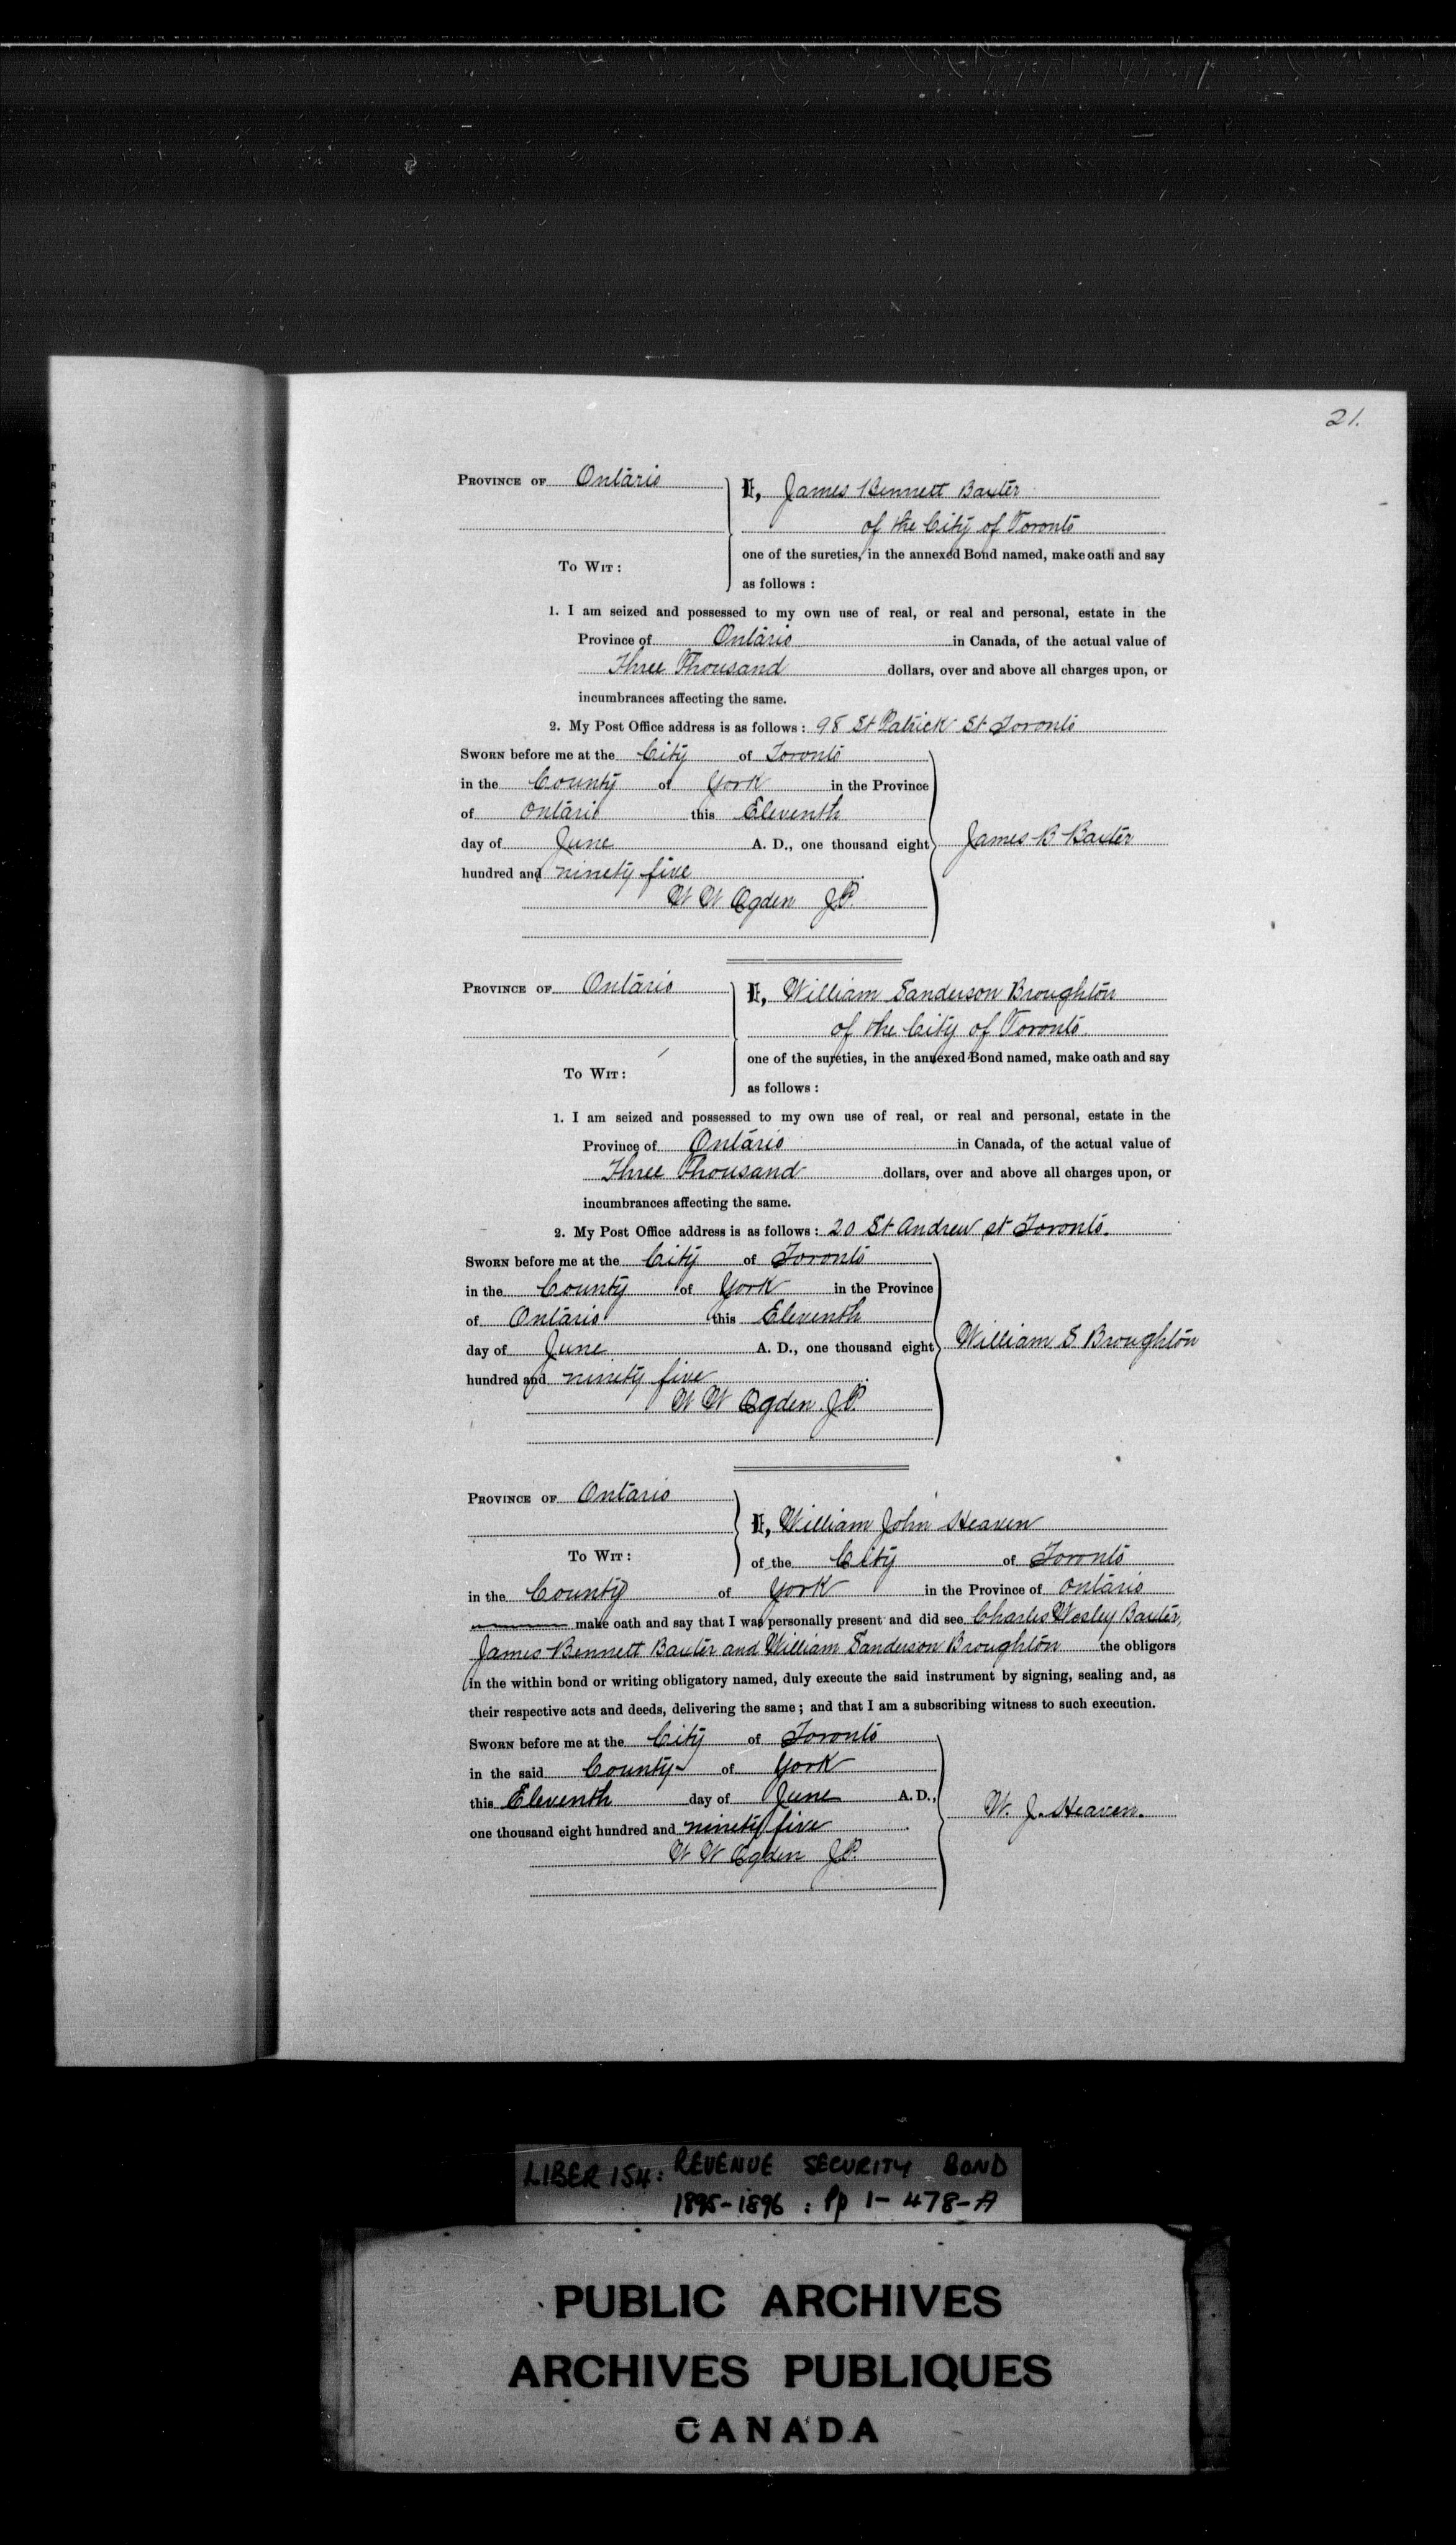 21.
PROVINCE OF Ontario
I, James Bennett Baxter
of the City of Toronto
TO WIT:
one of the sureties, in the annexed Bond named, make oath and say
as follows:
1. I am seized and possessed to my own use of real, or real and personal, estate in the
Province of Ontario in Canada, of the actual value of
Three Thousand dollars, over and above all charges upon, or
incumbrances affecting the same.
2. My Post Office address is as follows: 98 St Patrick St Toronto
SWORN before me at the City of Toronto
in the County of York in the Province
of Ontario this Eleventh
day of June A. D., one thousand eight
hundred and ninety five
James B Baxter
W W Ogden J.P.
PROVINCE OF Ontario
I, William Sanderson Broughton
of the City of Toronto
TO WIT:
one of the sureties, in the annexed Bond named, make oath and say
as follows:
1. I am seized and possessed to my own use of real, or real and personal, estate in the
Province of Ontario in Canada, of the actual value of
Three Thousand dollars, over and above all charges upon, or
incumbrances affecting the same.
2. My Post Office address is as follows: 20 St Andrew st Toronto.
SWORN before me at the City of Toronto
in the County of York in the Province
of Ontario this Eleventh
day of June A. D., one thousand eight
hundred and ninety five
William S Broughton
W W Ogden J.P.
PROVINCE OF Ontario
I, William John Heaven
TO WIT:
of the City of Toronto
in the County of York in the Province of Ontario
make oath and say that I was personally present and did see Charles Wesley Baxter,
James Bennett Baxter and William Sanderson Broughton the obligors
in the within bond or writing obligatory named, duly execute the said instrument by signing, sealing and, as
their respective acts and deeds, delivering the same; and that I am a subscribing witness to such execution.
SWORN before me at the City of Toronto
in the said County of York
this Eleventh day of June A.D.,
one thousand eight hundred and ninety five
W. J. Heaven.
W W Ogden J.P.
LIBER 154: REVENUE SECURITY BOND
1895-1896 : Pp 1-478-A
PUBLIC ARCHIVES
ARCHIVES PUBLIQUES
CANADA